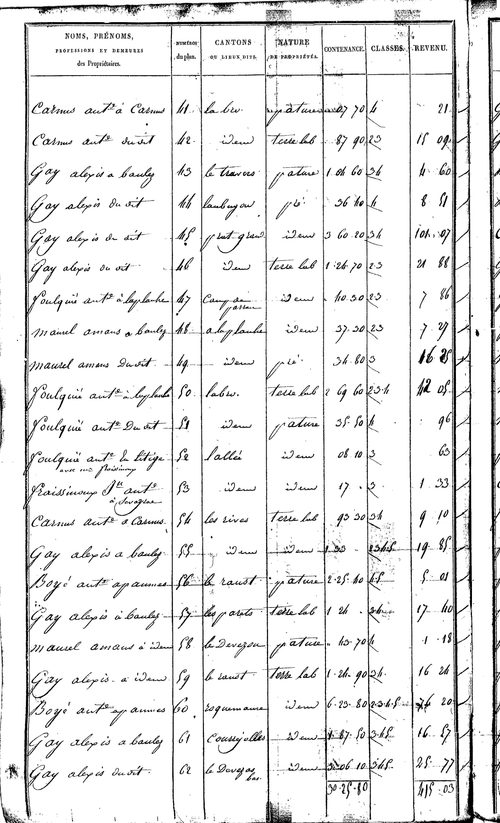 NOMS, PRÉNOMS,
PROFESSIONS ET DEMEURES
des Propriétaires.
NUMÉROS
du plan.
CANTONS
OU LIEUX DITS.
NATURE
DE PROPRIÉTÉS.
CONTENANCE.
CLASSES.
REVENU.
Carnus ant.e à Carnus 41 la bro pature 07 70 4 21
Carnus ant.e du dit 42 idem terre lab 87 90 23 15 09
Gay alexis a baulez 43 le travers pature 1 04 60 34 4 60
Gay alexis du dit 44 pré 36 40 4 8 51
Gay alexis du dit 45 prat grand idem 3 60 20 34 101 07
Gay alexis du dit 46 idem terre lab 1 26 70 23 21 88
foulquié ant.e à laplanke 47 idem 40 30 23 7 86
maurel amans a baulez 48 a laplanke idem 37 30 23 7 27
maurel amans du dit 49 idem pré 34 80 3 16 25
foulquié ant.e à laplanke 50 labro terre lab 2 69 60 234 42 05
foulquié ant.e du dit 51 idem pature 35 50 4 96
foulquié ant.e En litige 52 l'allée idem 08 10 3 63
avec fraissinoux
fraissinoux ant.e 53 idem idem 17 3 1 33
Carnus ant.e a Carnus 54 les rives terre lab 93 30 34 9 10
Gay alexis a baulez 55 idem idem 1 33 2345 19 85
Boyé ant.e a paumes 56 le ranst pature 2 25 40 45 5 01
Gay alexis à baulez 57 terre lab 1 24 34 17 40
maurel amans à idem 58 le Devezou pature 43 70 4 1 18
Gay alexis à idem 59 le ranst terre lab 1 24 90 34 16 24
Boyé ant.e a paumes 60 idem 6 23 80 2345 74 20
Gay alexis a baulez 61 Coursejolles idem 1 87 50 345 16 57
Gay alexis du dit 62 le Devezou idem 3 06 10 345 25 77
bas
30 25 80 415 03